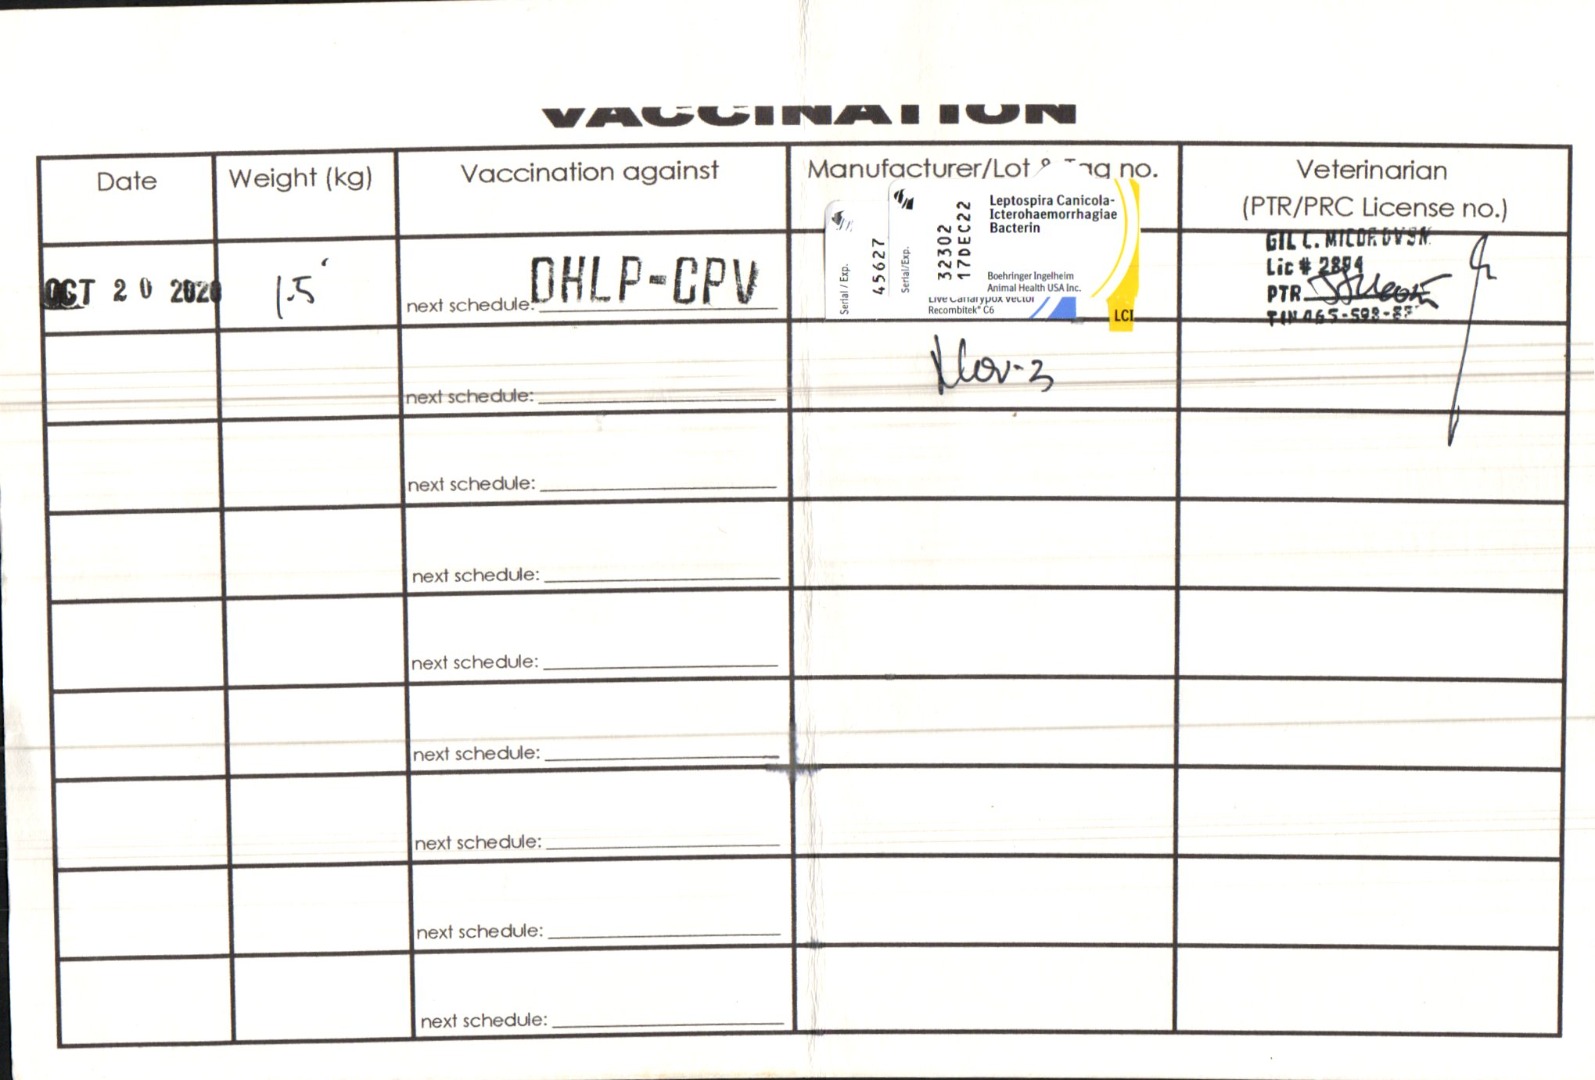 VACCINATION
Date
Weight (kg)
Vaccination against
Manufacturer/Lot & Tag no.
Veterinarian
(PTR/PRC License no.)
OCT 20 2020
1.5
DHLP-CPV
next schedule:
Serial / Exp.
45627
Serial/Exp.
32302
17DEC22
Leptospira Canicola-
Icterohaemorrhagiae
Bacterin
Boehringer Ingelheim
Animal Health USA Inc.
Live Canarypox Vector
Recombitek® C6
LCI
GIL C.
Lic # 2894
PTR
TIN 465-598-
next schedule:
Nov-3
next schedule:
next schedule:
next schedule:
next schedule:
next schedule:
next schedule:
next schedule: